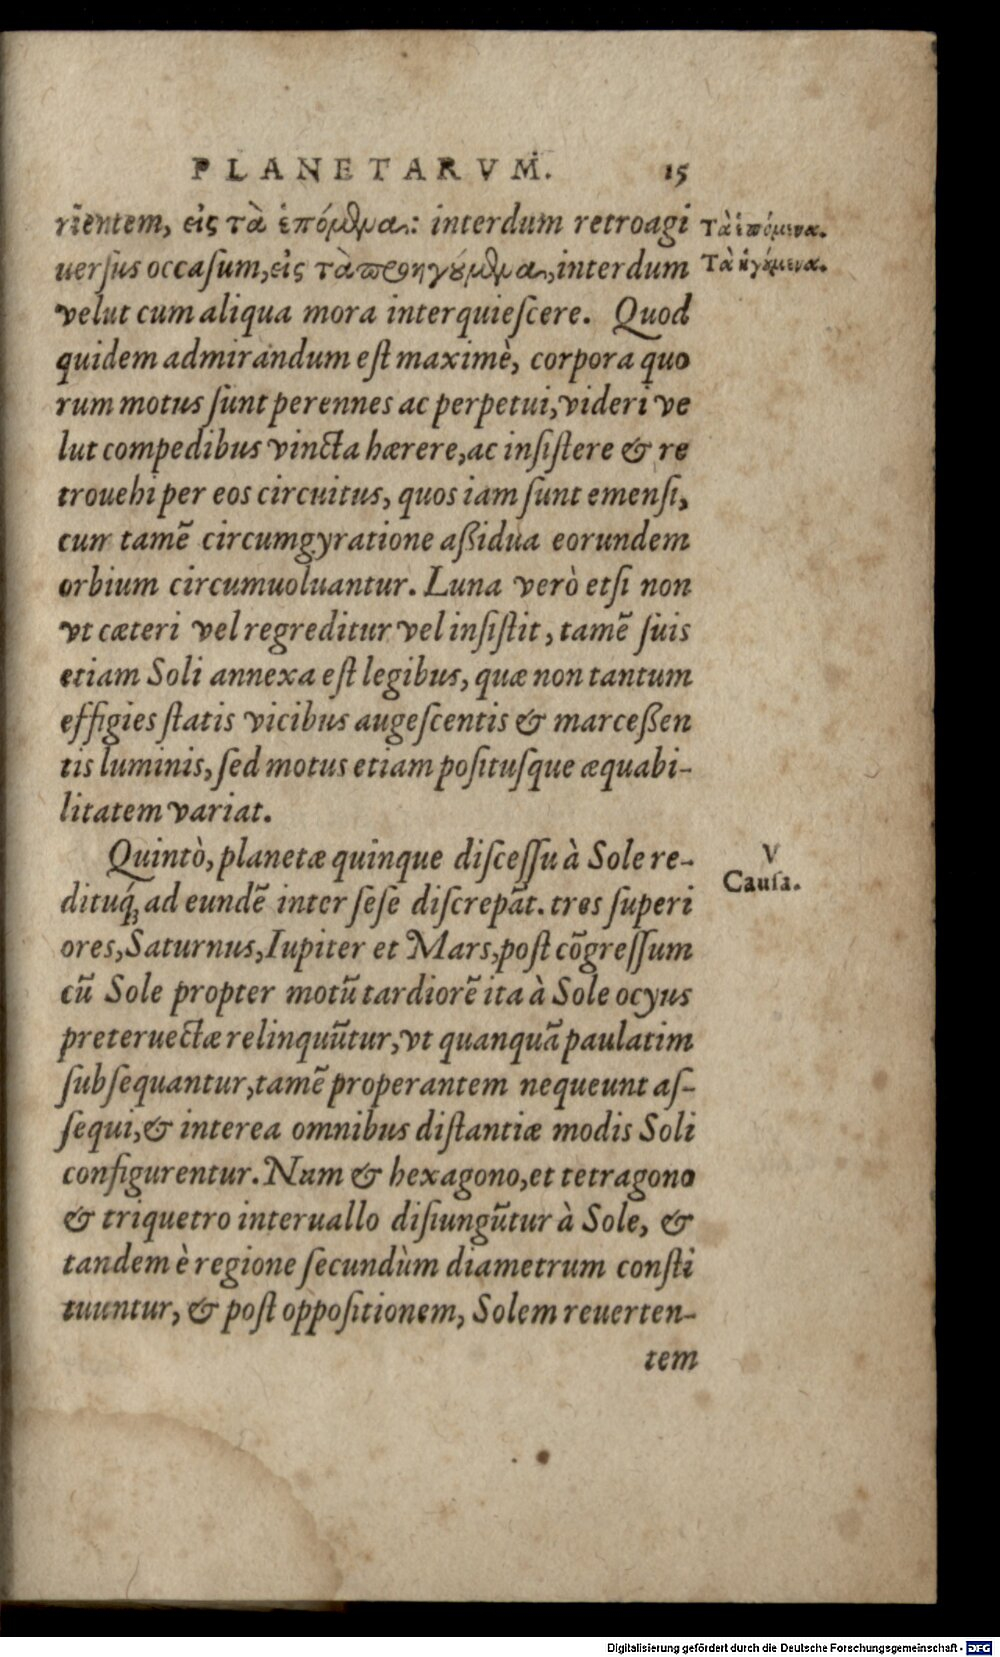 PLANETARVM. 15
rientem, εἰς τὰ ἑπόμενα: interdum retroagi
uersus occasum, εἰς τὰ προηγούμενα, interdum
velut cum aliqua mora interquiescere. Quod
quidem admirandum est maximè, corpora quo
rum motus sunt perennes ac perpetui, videri ve
lut compedibus vincta hærere, ac insistere & re
trouehi per eos circuitus, quos iam sunt emensi,
cum tamẽ circumgyratione aßidua eorundem
orbium circumuoluantur. Luna verò etsi non
vt cæteri vel regreditur vel insistit, tamẽ suis
etiam Soli annexa est legibus, quæ non tantum
effigies statis vicibus augescentis & marceßen
tis luminis, sed motus etiam positusque æquabi-
litatem variat.
Quintò, planetæ quinque discessu à Sole re-
dituq́ꝫ ad eundẽ inter sese discrepãt. tres superi
ores, Saturnus, Iupiter et Mars, post cõgressum
cũ Sole propter motũ tardiorẽ ita à Sole ocyus
preteruectæ relinquũtur, vt quanquã paulatim
subsequantur, tamẽ properantem nequeunt as-
sequi, & interea omnibus distantiæ modis Soli
configurentur. Nam & hexagono, et tetragono
& triquetro interuallo disiungũtur à Sole, &
tandem è regione secundùm diametrum consti
tuuntur, & post oppositionem, Solem reuerten-
tem
Τὰ ἑπόμενα.
Τὰ ἡγούμενα.
V
Causa.
Digitalisierung gefördert durch die Deutsche Forschungsgemeinschaft - DFG